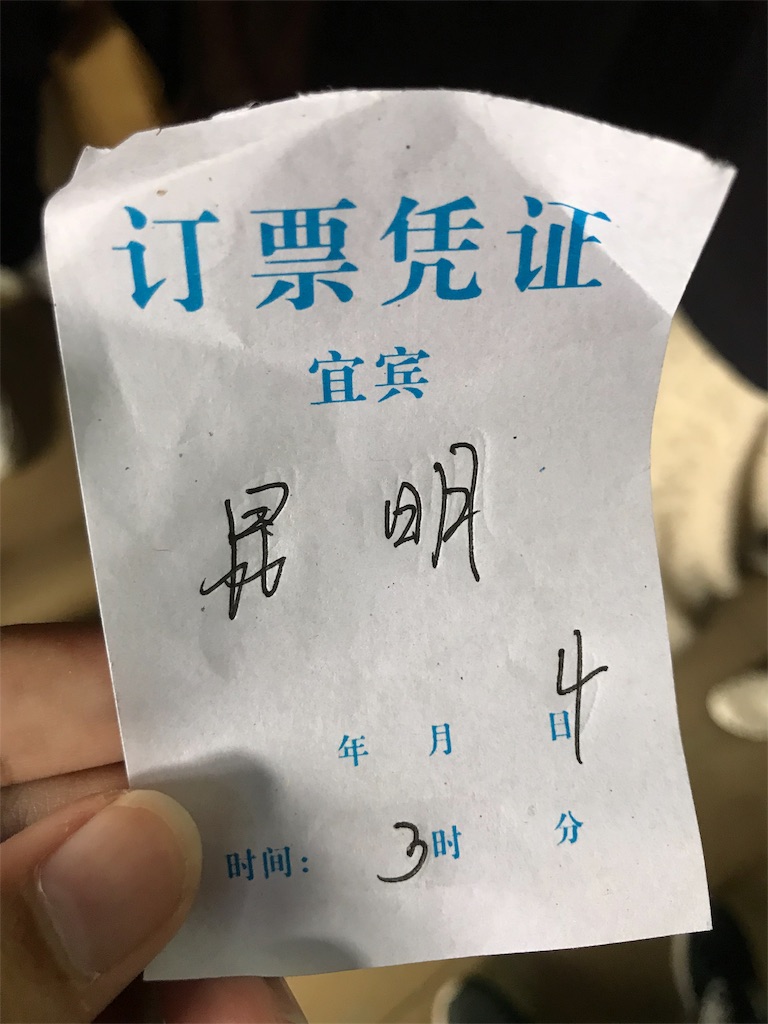 订票凭证
宜宾
昆明
年 月 日 4
时间: 3时 分